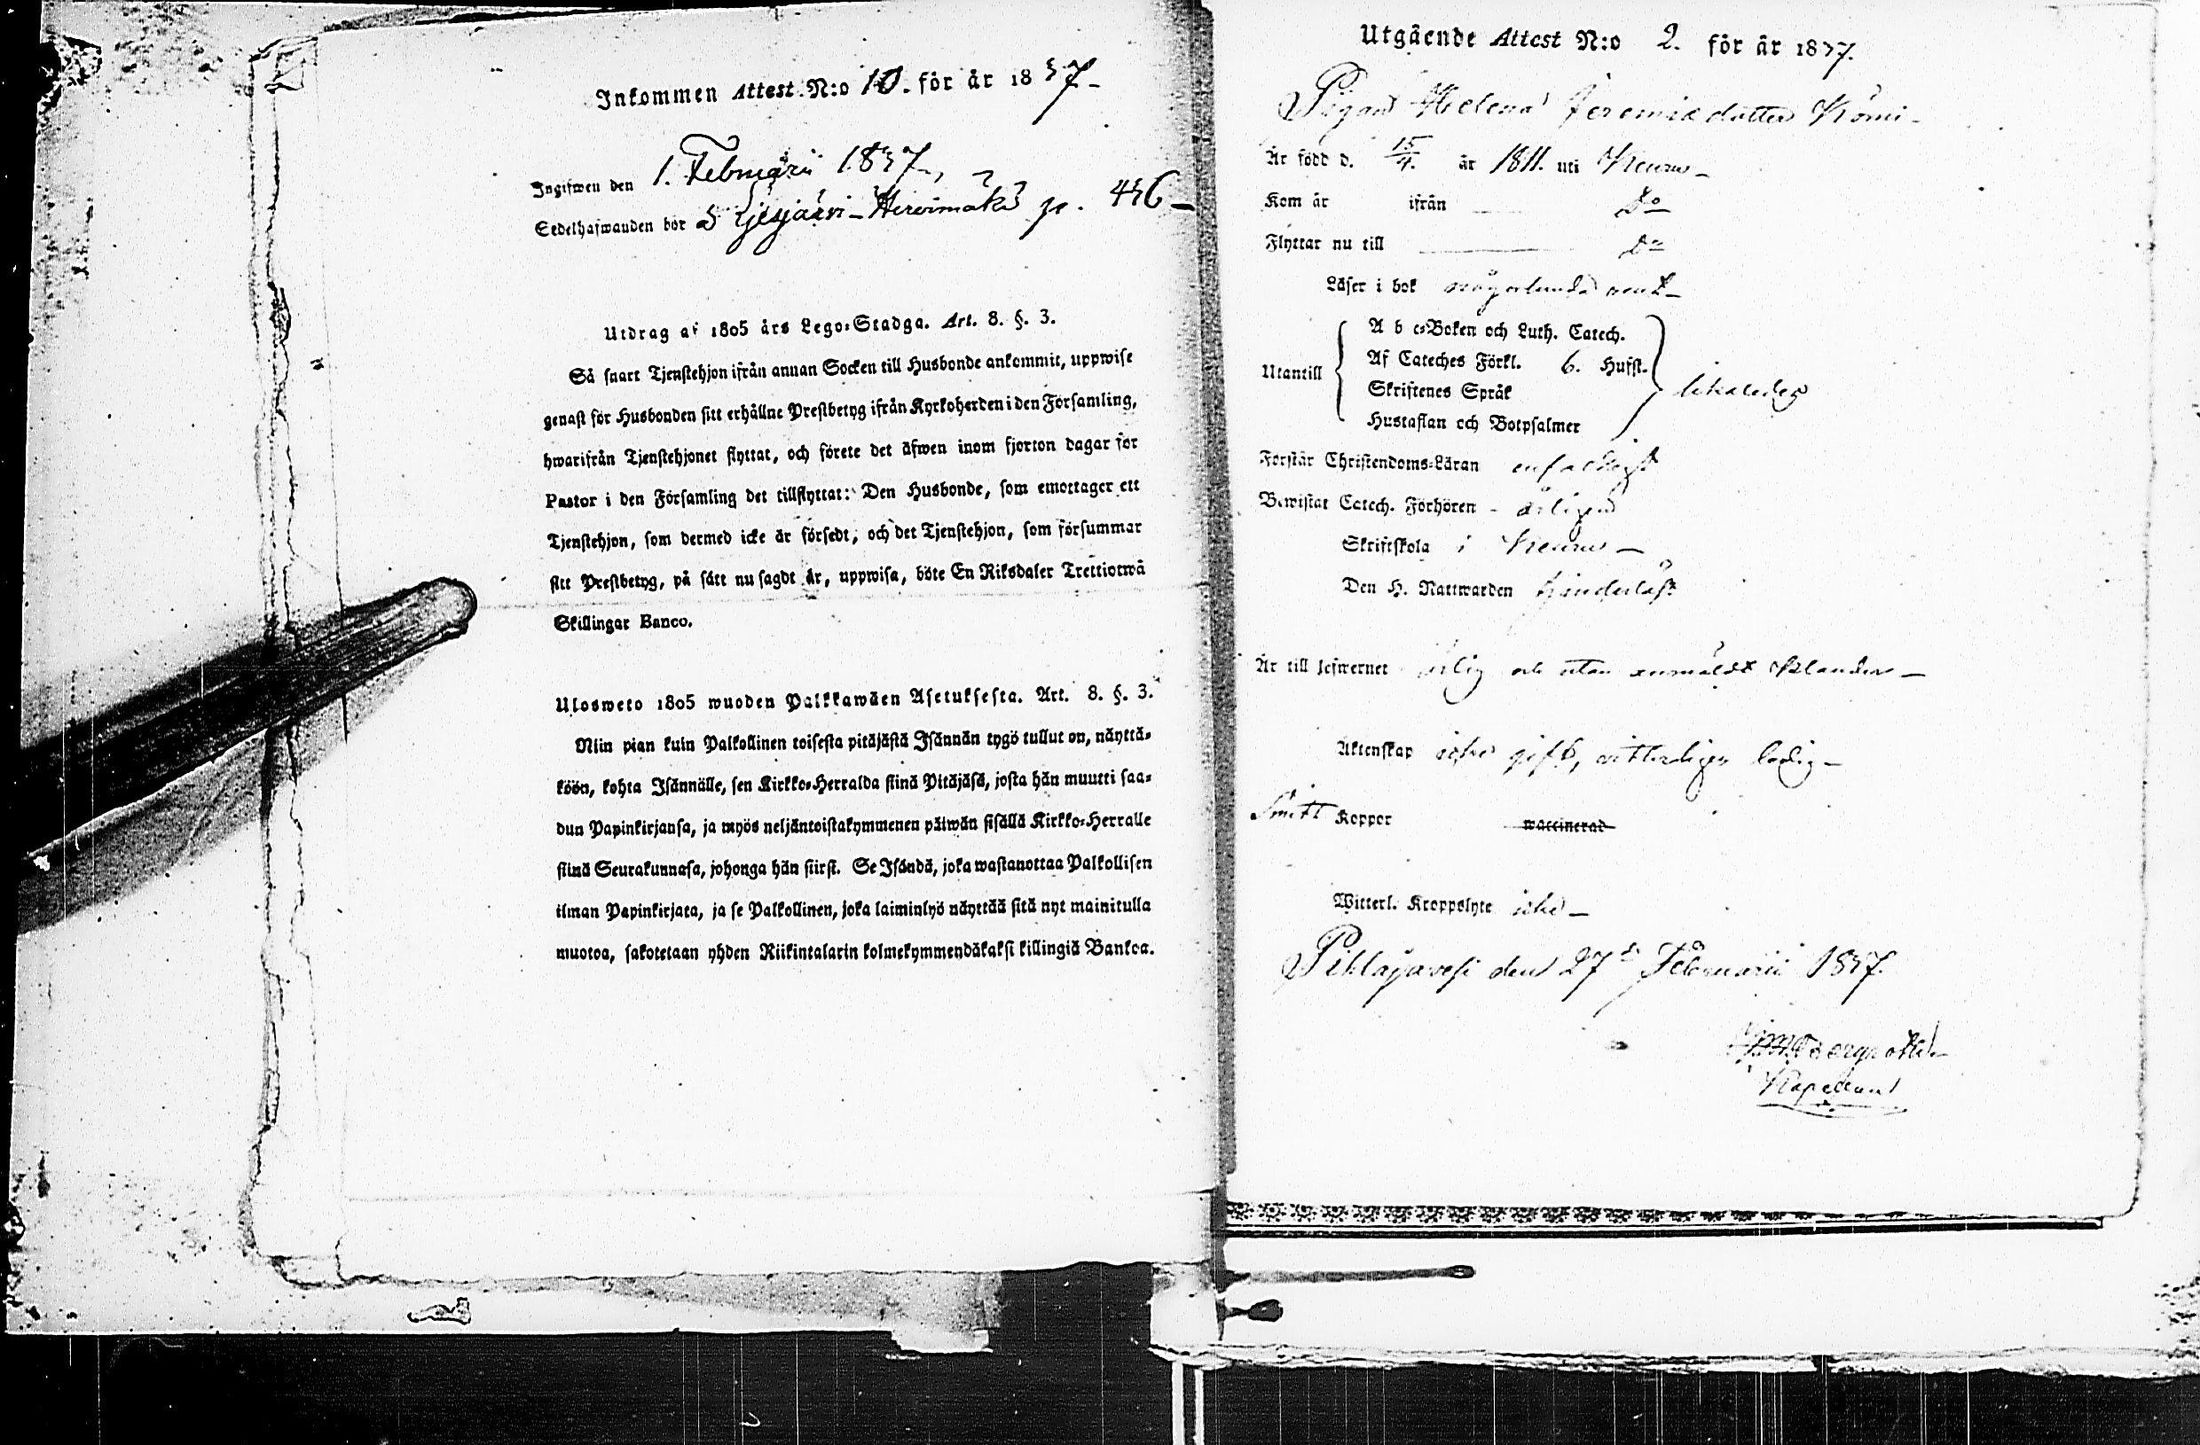 Inkommen Attest N:o 10. för år 1837-
Ingifwen den 1. Februarii 1837-,
Sedelhafwanden bor p. 436-
Utdrag af 1805 års Lego-Stadga. Art. 8. §. 3.
Så snart Tjenstehjon ifrån annan Socken till Husbonde ankommit, uppwise
genast för Husbonden sitt erhållne Prestbetyg ifrån Kyrkoherden i den Församling,
hwarifrån Tjenstehjonet flyttat, och förete det äfwen inom fjorton dagar för
Pastor i den Församling det tillflyttat: Den Husbonde, som emottager ett
Tjenstehjon, som dermed icke är försedt, och det Tjenstehjon, som försummar
sitt Prestbetyg, på sätt nu sagdt är, uppwisa, böte En Riksdaler Trettiotwå
Skillingar Banco.
Ulosweto 1805 wuoden Palkkawäen Asetuksesta. Art. 8. §. 3.
Niin pian kuin Palkollinen toisesta pitäjästä Isännän tygö tullut on, näyttä-
köön, kohta Isännälle, sen Kirkko-Herralda siinä Pitäjäsä, josta hän muutti saa-
dun Papinkirjansa, ja myös neljäntoistakymmenen päiwän sisällä Kirkko-Herralle
siinä Seurakunnasa, johonga hän siirst. Se Isändä, joka wastanottaa Palkollisen
ilman Papinkirjata, ja se Palkollinen, joka laiminlyö näyttää sitä nyt mainitulla
muotoa, sakotetaan yhden Riikintalarin kolmekymmendäkaksi killingiä Bankoa.
Utgående Attest N:o 2. för år 1837.
Pigan Helena Jeremiædotter Kömi-
Är född d. 15/4. år 1811. uti Keuru-
Kom år ifrån Do
Flyttar nu till Do
Läser i bok någorlunda rent-
Utantill
A b c-Boken och Luth. Catech.
Af Cateches Förkl. 6. Hufst.
Skriftenes Språk
Hustaflan och Botpsalmer
likaledes
Förstår Christendoms-Läran enfaldigt
Bewistat Catech. Förhören - årligen
Skriftskola i Keuru-
Den H. Nattwarden
Är till lefwernet ärlig och utan anmäldt klander-
Äktenskap icke gift, witterligen ledig-
Koppor waccinerad
Witterl. Kroppslyte icke-
Pihlajavesi den 27de Februarii 1837.
Kapellan